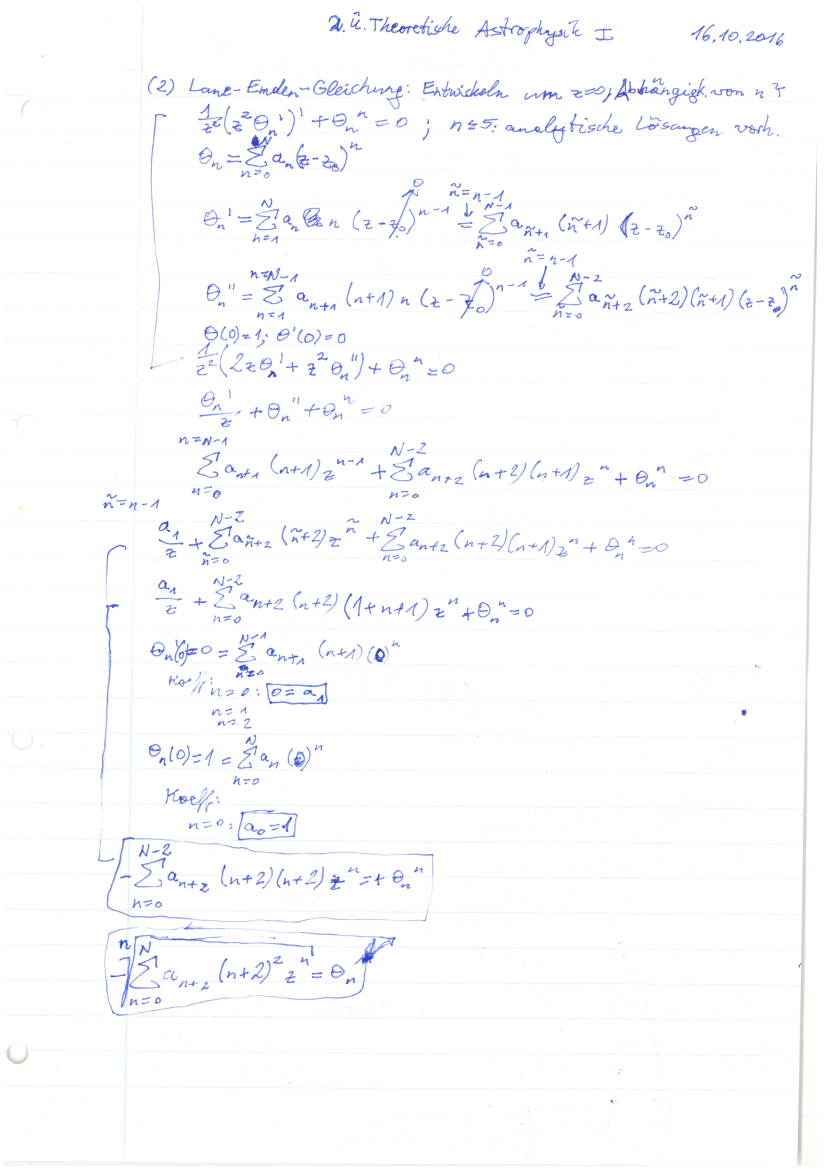 2. Ü. Theoretische Astrophysik I 16.10.2016
(2) Lane-Emden-Gleichung: Entwickeln um z=0, Abhängigk. von n?
1/z² (z² Θₙ')' + Θₙⁿ = 0 ; n≤5: analytische Lösungen vorh.
Θₙ = Σ_{n=0}^{N} aₙ (z-z₀)ⁿ
ñ=n-1
Θₙ' = Σ_{n=1}^{N} aₙ n (z-z₀)^{n-1} = Σ_{ñ=0}^{N-1} a_{ñ+1} (ñ+1) (z-z₀)^ñ
ñ=n-1
Θₙ'' = Σ_{n=1}^{n=N-1} a_{n+1} (n+1) n (z-z₀)^{n-1} = Σ_{ñ=0}^{N-2} a_{ñ+2} (ñ+2)(ñ+1) (z-z₀)^ñ
Θ(0)=1; Θ'(0)=0
1/z² (2zΘₙ' + z² Θₙ'') + Θₙⁿ = 0
Θₙ'/z + Θₙ'' + Θₙⁿ = 0
Σ_{n=0}^{n=N-1} a_{n+1} (n+1) z^{n-1} + Σ_{n=0}^{N-2} a_{n+2} (n+2)(n+1) zⁿ + Θₙⁿ = 0
ñ=n-1
a₁/z + Σ_{ñ=0}^{N-2} a_{ñ+2} (ñ+2) z^ñ + Σ_{n=0}^{N-2} a_{n+2} (n+2)(n+1) zⁿ + Θₙⁿ = 0
a₁/z + Σ_{n=0}^{N-2} a_{n+2} (n+2) (1+n+1) zⁿ + Θₙⁿ = 0
Θₙ'(0) = 0 = Σ_{n=0}^{N-1} a_{n+1} (n+1) (0)ⁿ
Koeff: n=0: 0 = a₁
n=1
n=2
Θₙ(0) = 1 = Σ_{n=0}^{N} aₙ (0)ⁿ
Koeff:
n=0: a₀=1
-Σ_{n=0}^{N-2} a_{n+2} (n+2)(n+2) zⁿ = + Θₙⁿ
-ⁿ√(Σ_{n=0}^{N} a_{n+2} (n+2)² zⁿ) = Θₙ